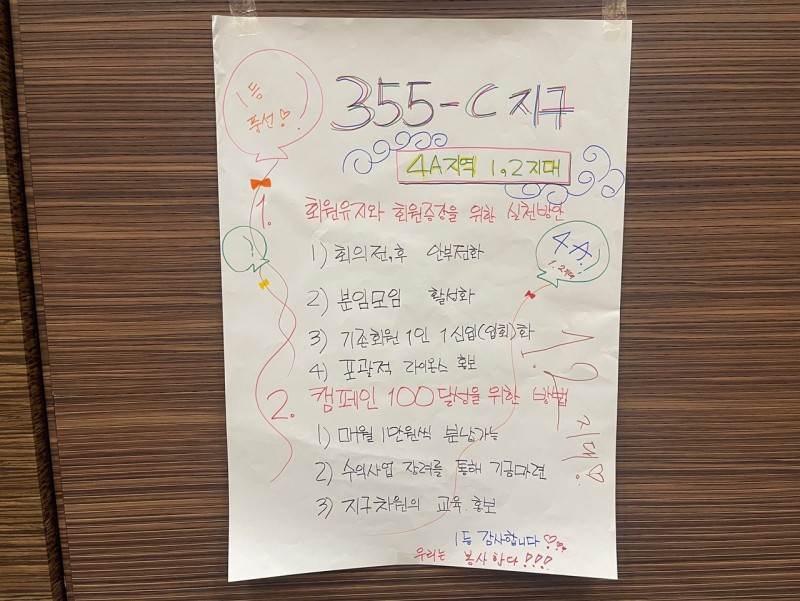 1등
풍선♡!
355-C 지구
4A지역 1,2지대
1. 회원유지와 회원증강을 위한 실천방안
1) 회의전,후 안부전화
4A!
1.2지대
2) 분임모임 활성화
3) 기존회원 1인 1신입(입회)화
4) 포괄적 라이온스 홍보
2. 캠페인 100 달성을 위한 방법
1) 매월 1만원씩 분납가능
2) 수의사업 장려를 통해 기금마련
3) 지구차원의 교육.홍보
1,2 지대♡!
1등 감사합니다♡
우리는 봉사한다!!!